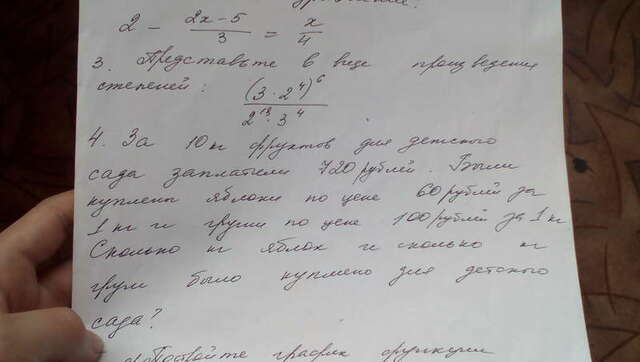 2 - (2x-5)/3 = x/4
3. Представьте в виде произведения
степеней: (3 · 2⁴)⁶ / (2¹³ · 3⁴)
4. За 10 кг фруктов для детского
сада заплатили 720 рублей. Были
куплены яблоки по цене 60 рублей за
1 кг и груши по цене 100 рублей за 1 кг
Сколько кг яблок и сколько кг
груш было куплено для детского
сада?
Постройте график функции